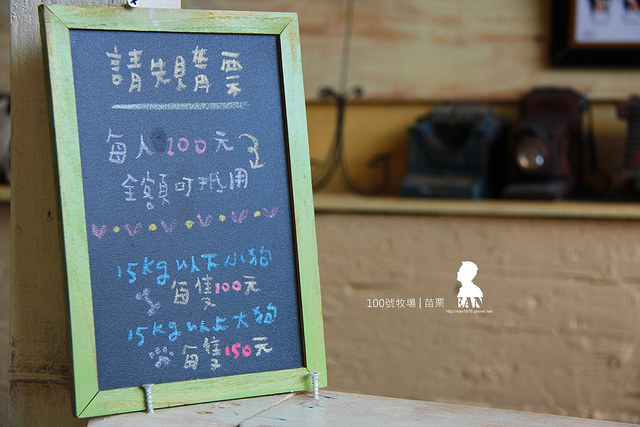 請先購票
每人100元
全額可抵用
15kg以下小狗
每隻100元
15kg以上大狗
每隻150元
100號牧場 | 苗栗